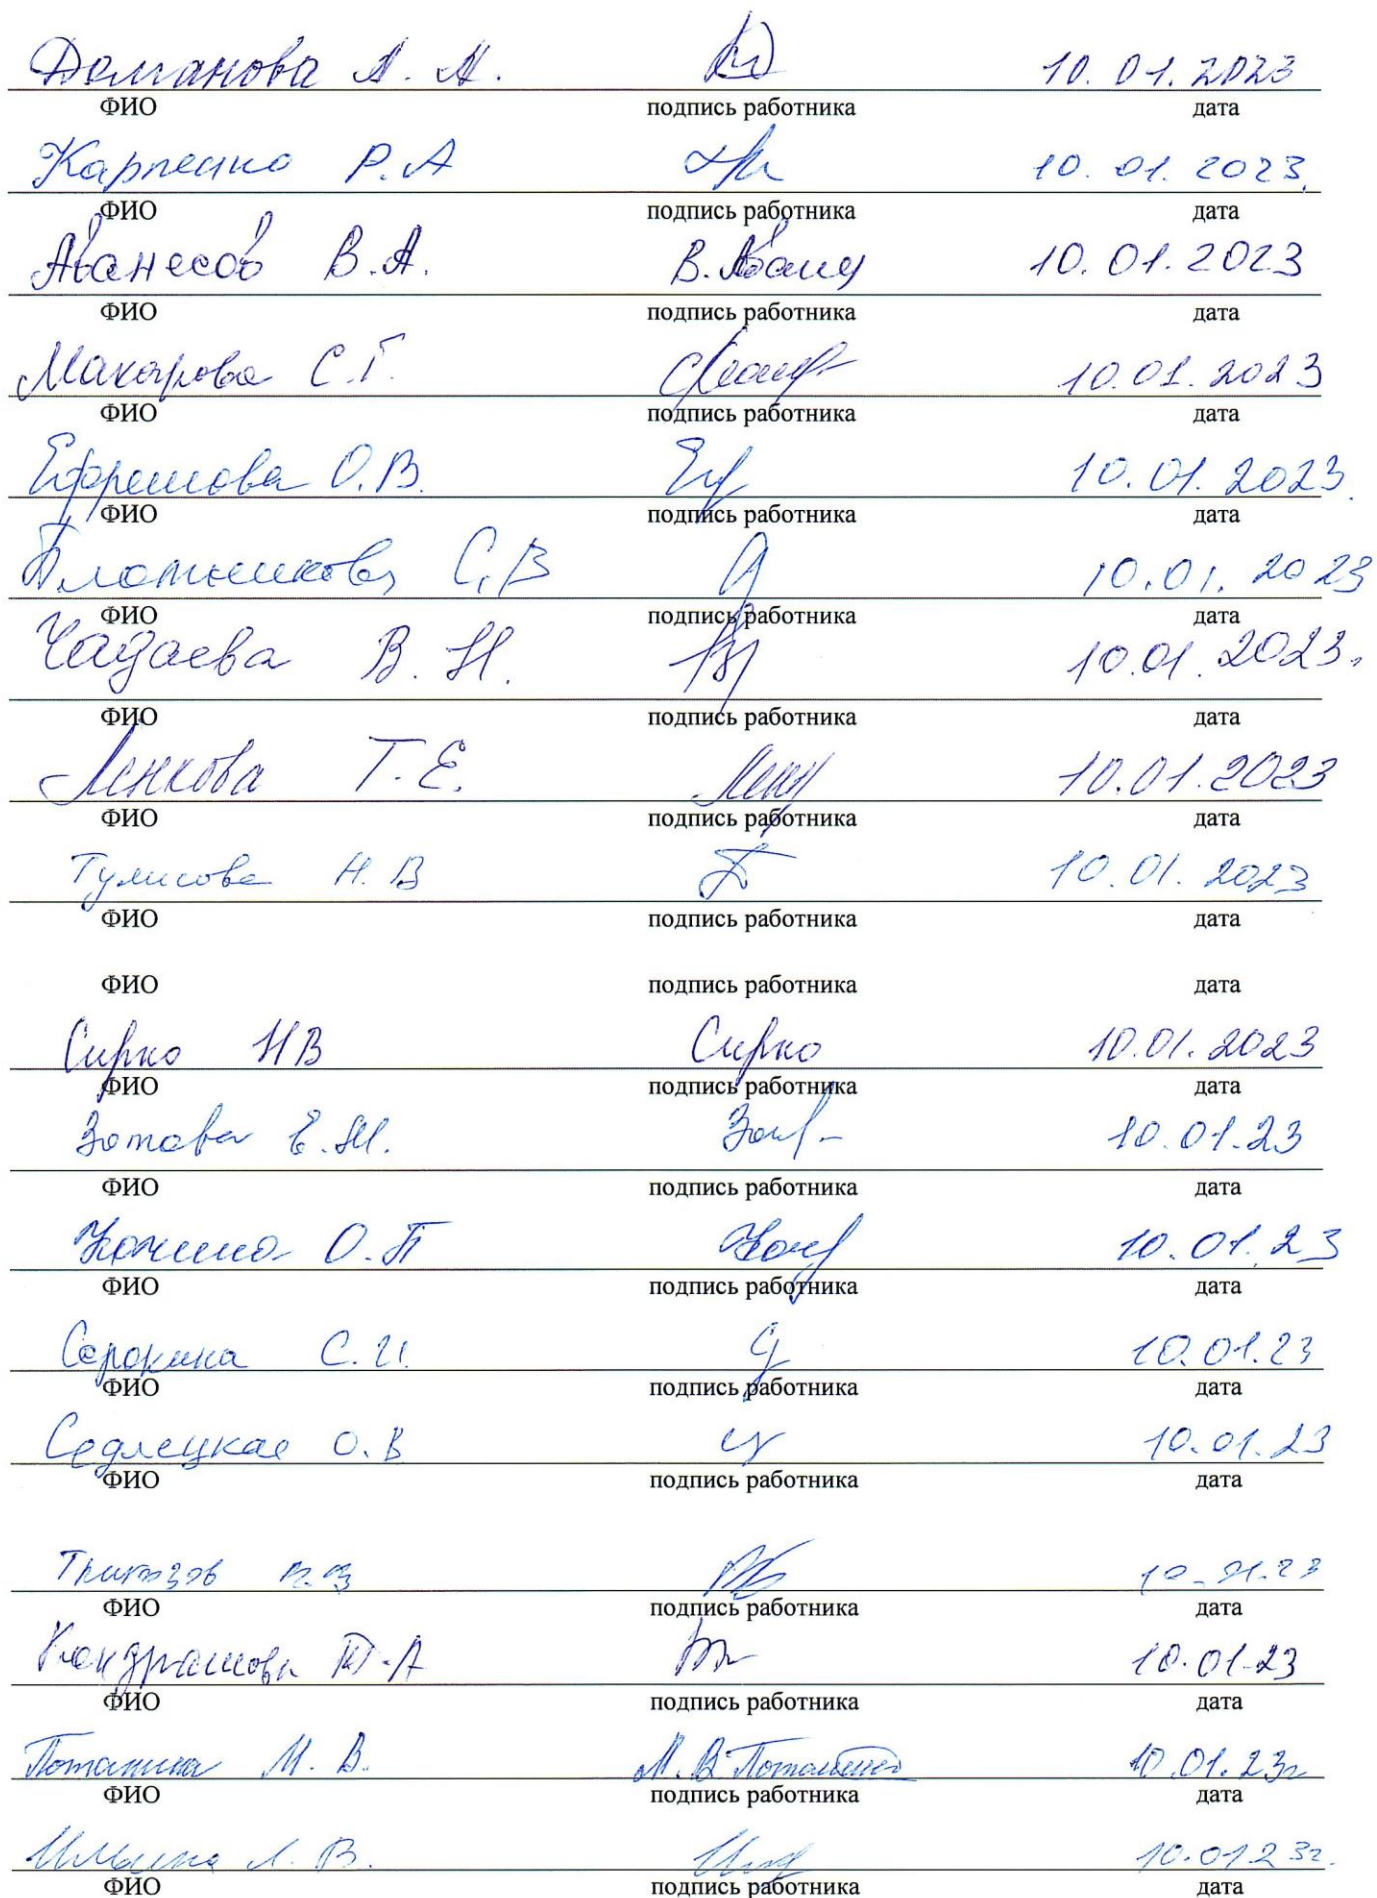 Долганова А. А. 10.01.2023
ФИО подпись работника дата
Карпенко Р.А 10.01.2023.
ФИО подпись работника дата
Аванесов В.А. В.Аванес 10.01.2023
ФИО подпись работника дата
Макарова С.Г. 10.01.2023
ФИО подпись работника дата
Ефремова О.В. 10.01.2023.
ФИО подпись работника дата
Плотникова С.В 10.01.2023
ФИО подпись работника дата
Чадаева В. Н. 10.01.2023.
ФИО подпись работника дата
Ленкова Т.Е. 10.01.2023
ФИО подпись работника дата
Тулисова Н.В 10.01.2023
ФИО подпись работника дата
ФИО подпись работника дата
Сирко НВ Сирко 10.01.2023
ФИО подпись работника дата
Зотова Е.М. 10.01.23
ФИО подпись работника дата
О.П 10.01.23
ФИО подпись работника дата
Сорокина С.И. 10.01.23
ФИО подпись работника дата
Седлецкая О.В 10.01.23
ФИО подпись работника дата
10.01.23
ФИО подпись работника дата
Кондрашова Т.А 10.01.23
ФИО подпись работника дата
Потапкина М. В. М.В.Потапкина 10.01.23г
ФИО подпись работника дата
Ильина Л. В. 10.01.23г.
ФИО подпись работника дата